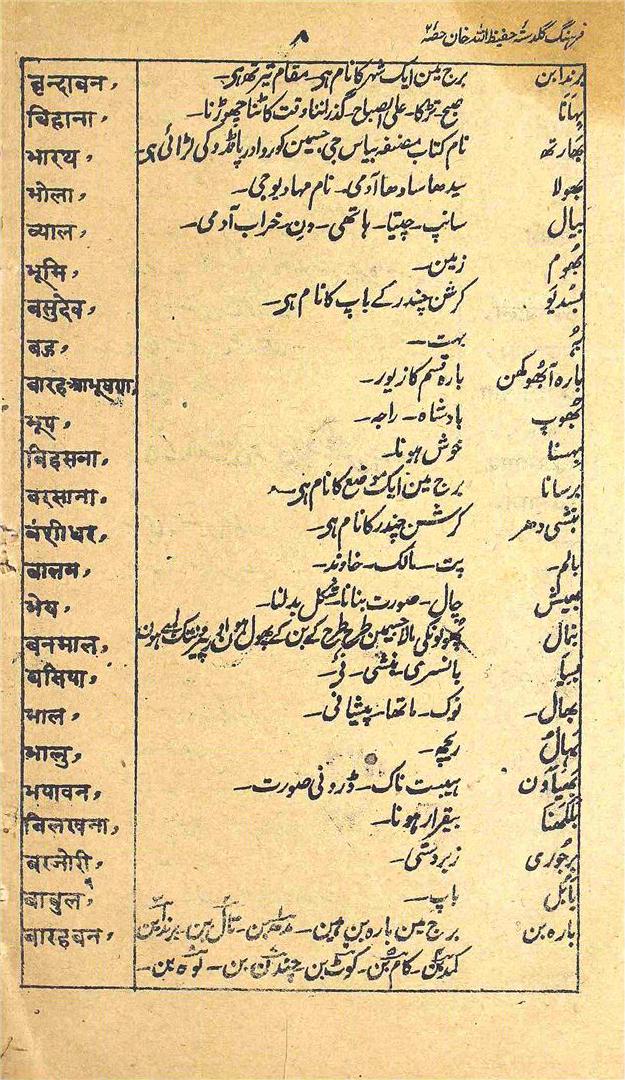 فرہنگ گلدستہ حفیظ اللہ خان حصہ ۲
۸
برندابن برج مین ایک شہر کا نام ہی۔ مقام تیرتھ ہی۔ बृन्दाबन,
بہانا صبح۔ تڑکا۔ علی الصباح۔ گذر لنا وقت کاٹنا چھوڑنا۔ बिहाना,
بھارتھ نام کتاب مصنفہ بیاس جی جسمین کورو اور پانڈو کی لڑائی ہی۔ भारथ,
بھولا سیدھا سادھا آدمی۔ نام مہادیو جی۔ भोला,
بیال سانپ۔ چیتا۔ ہاتھی۔ دن۔ خراب آدمی۔ ब्याल,
بھوم زمین۔ भूमि,
بسدیو کرشن چندر کے باپ کا نام ہی۔ बसुदेव,
بہت۔ बहु,
بارہ آبھوکھن بارہ قسم کا زیور۔ बारहआभूषण,
بھوپ بادشاہ۔ راجہ۔ भूप,
بہسنا خوش ہونا۔ बिहसना,
برسانا برج مین ایک موضع کا نام ہی۔ बरसाना,
بنشی دھر کرشن چندر کا نام ہی۔ बंशीधर,
بالم۔ پت۔ مالک۔ خاوند۔ बालम,
بھیش چال۔ صورت بنانا۔ شکل بدلنا۔ भेष,
بنمال پھولونکی مالا جسمین طرح طرح کے بن کے پھول ہون اور پیر تک لمبے ہون बनमाल,
بسیا بانسری۔ بنشی۔ نے۔ बसिया,
بھال۔ نوک۔ ماتھا۔ پیشانی۔ भाल,
بھال ریچھ۔ भालु,
بھیاون ہیبت ناک۔ ڈرونی صورت۔ भयावन,
بلکھنا بیقرار ہونا۔ बिलखना,
برجوری زبردستی۔ बरजोरी,
بابل باپ۔ बाबुल,
بارہ بن برج مین بارہ بن ہین۔ مدھبن۔ تال بن۔ برندابن बारहबन,
کمدبن۔ کام بن۔ کوٹ بن۔ چندن بن۔ لوہ بن۔